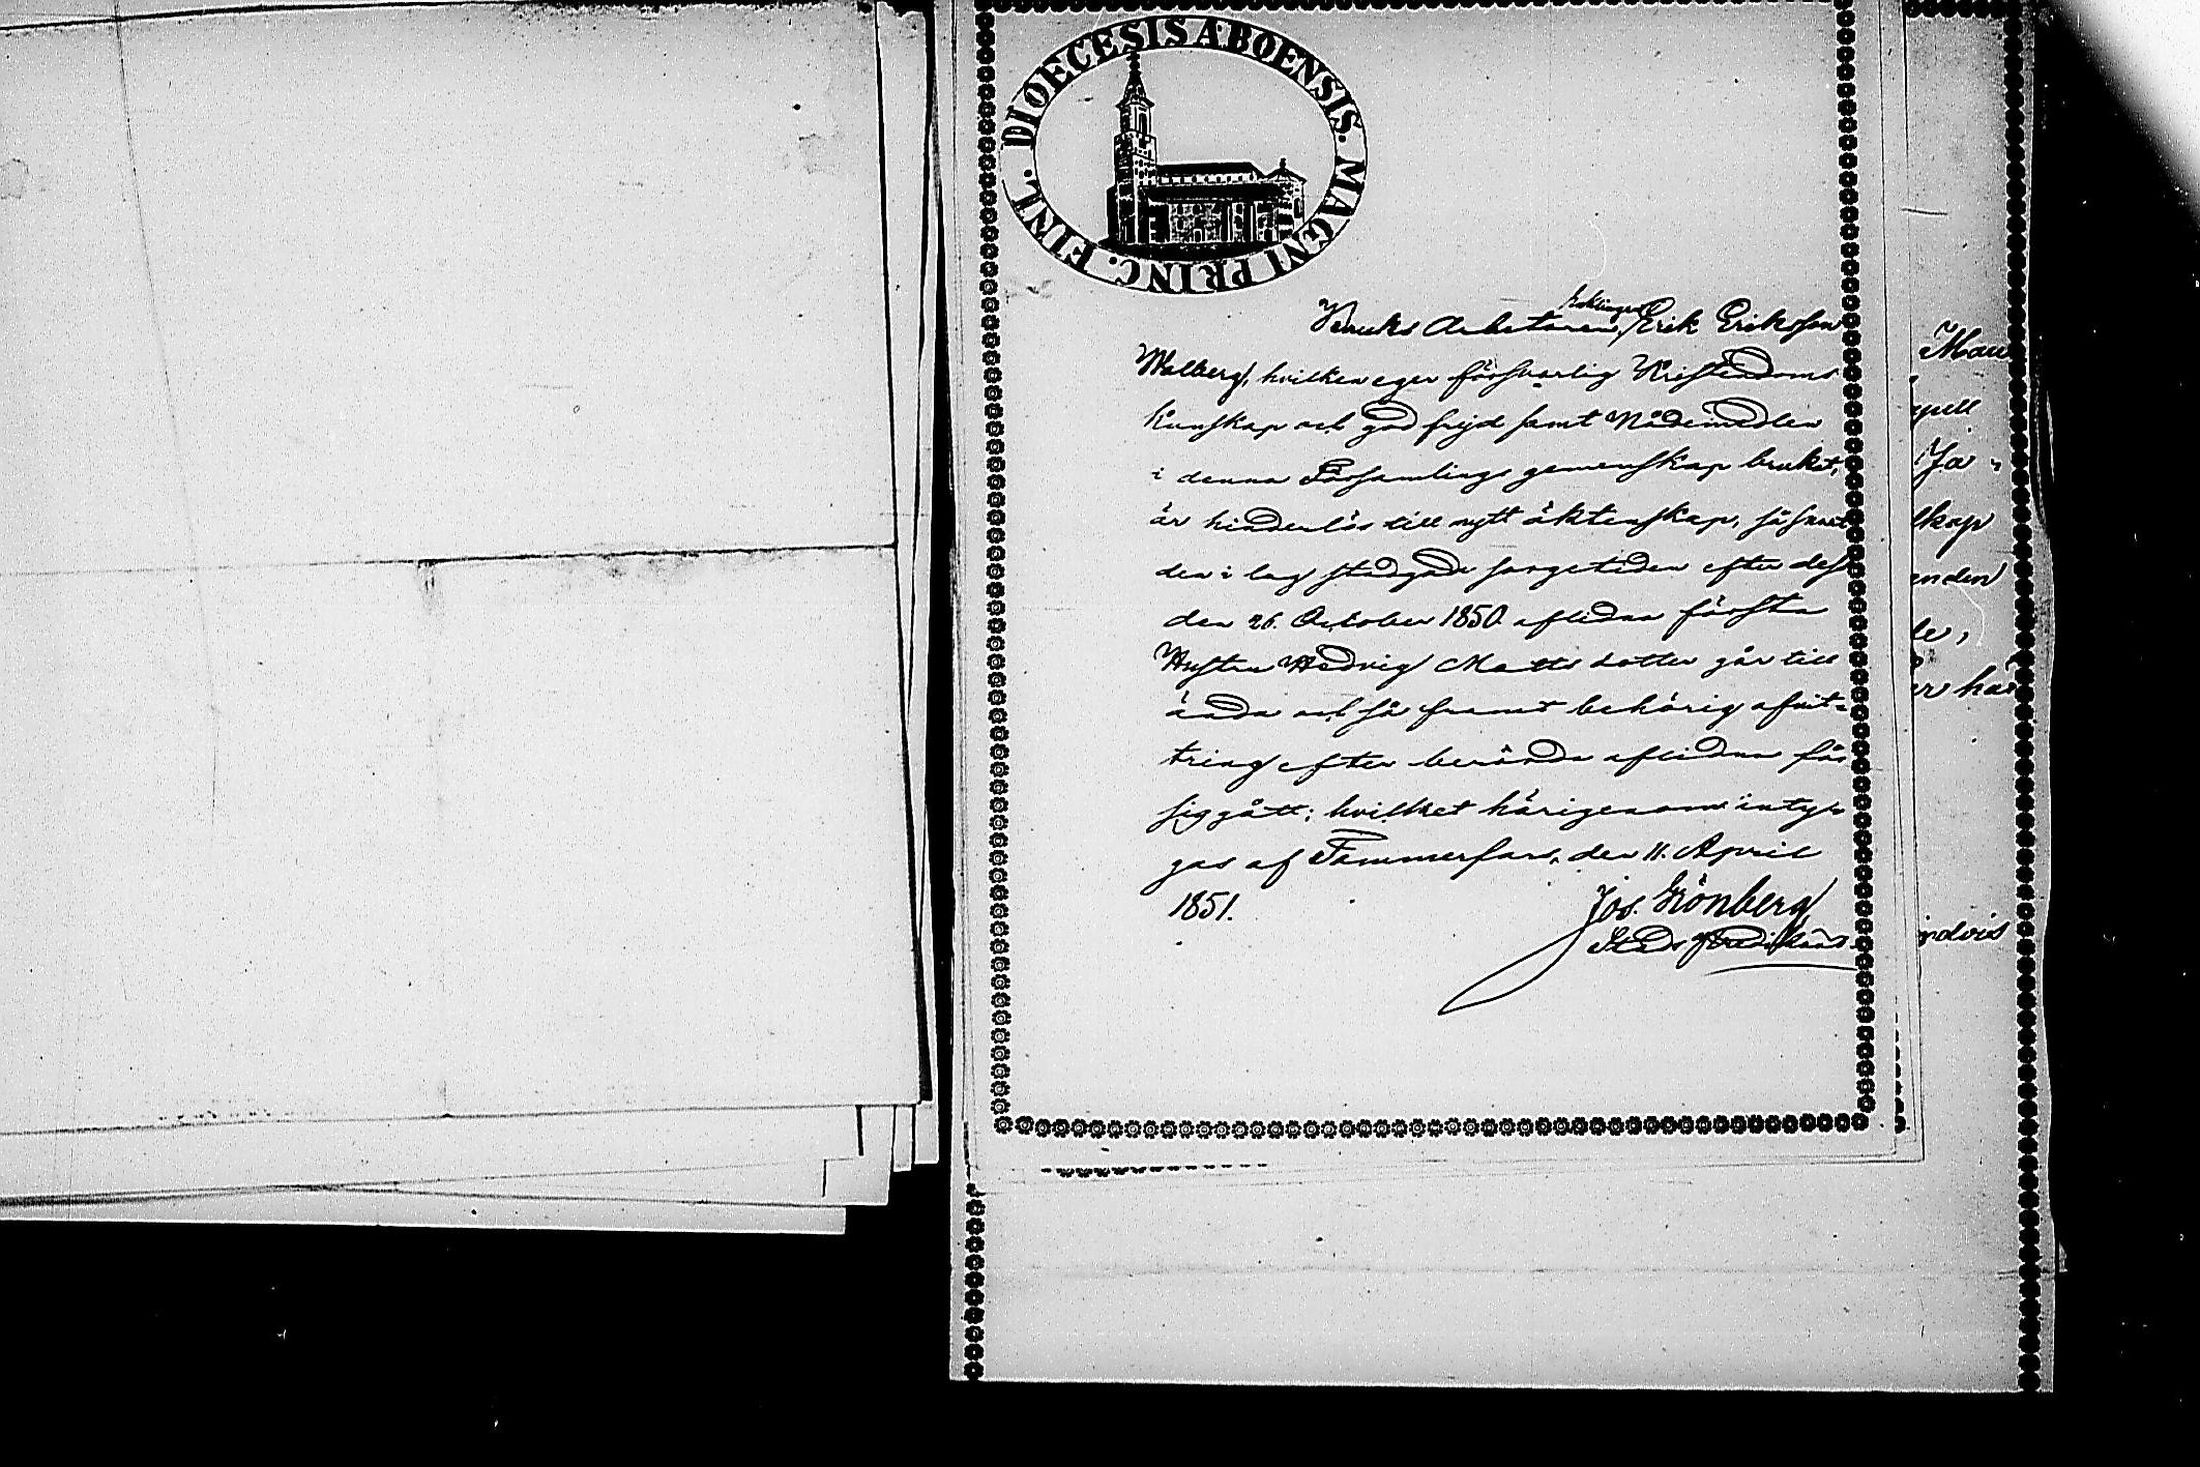 DIOECESIS ABOENSIS. MAGNI PRINC. FINL.
Bruks Arbetaren, Enklingen Erik Eriksson
Walberg, hvilken eger försvarlig Kristendoms
kunskap och god frejd samt Nådemedlen
i denna Församlings gemenskap brukat,
är hinderlös till nytt äktenskap, så snart
den i lag stadgade sorgetiden efter dess
den 26. October 1850 aflidna första
Hustru Hedvig Matts dotter går till
ända och så framt behörig afvit-
tring efter berörda aflidna för
sig gått; hvilket härigenom inty-
gas af Tammerfors, den 11. April
1851.
Jos. Grönberg
Stads Predikant
Mau
pell
Ja-
skap
anden
le,
er har
ndvis